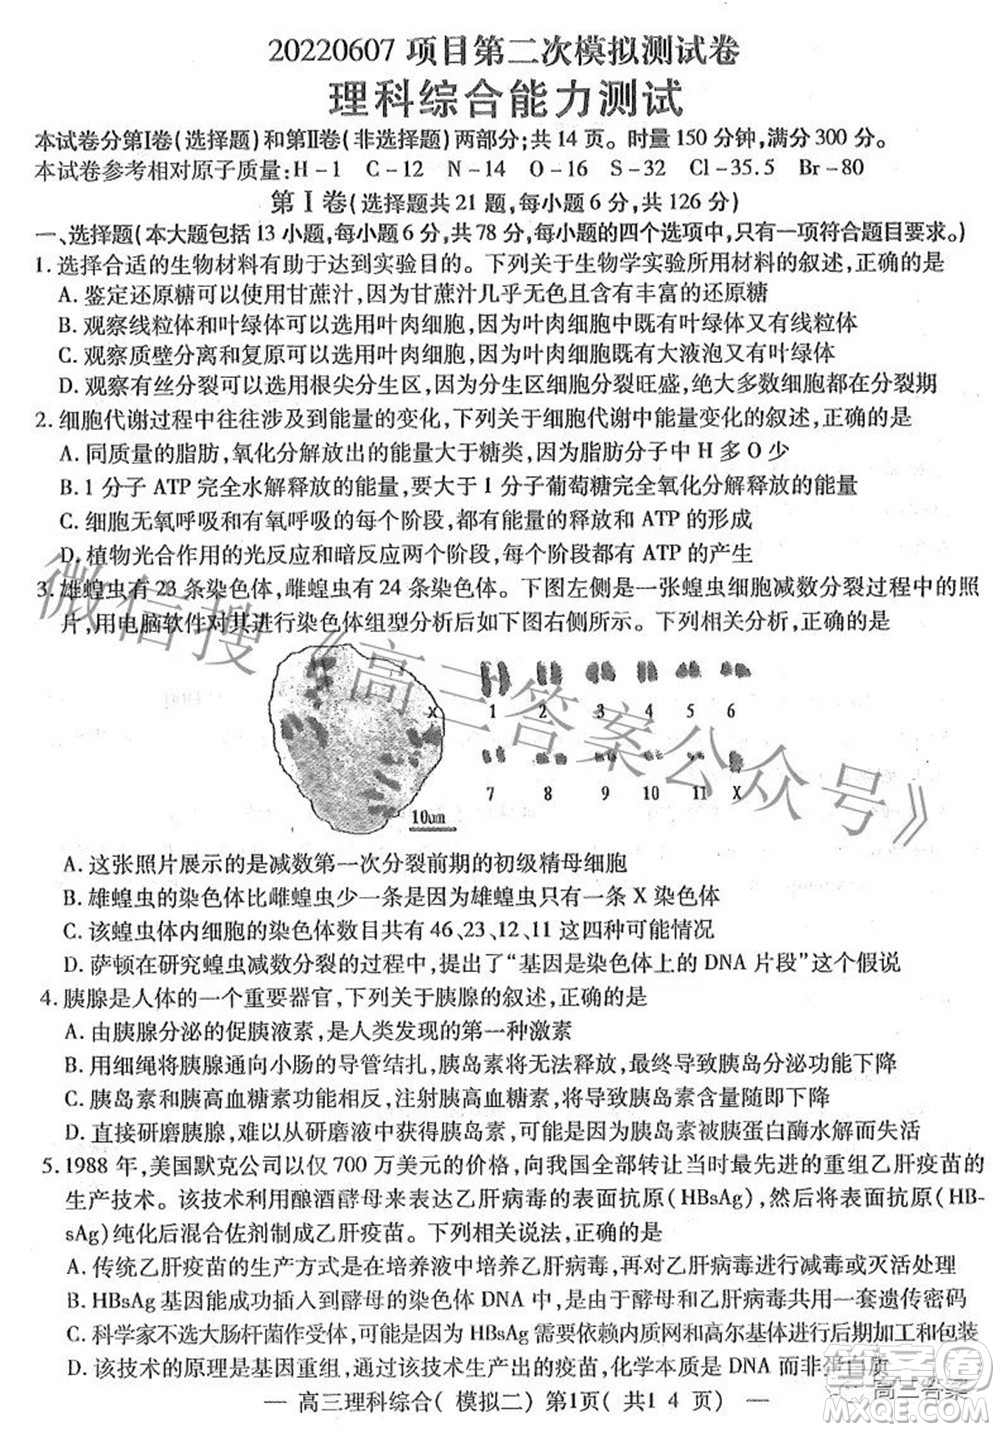 20220607 项目第二次模拟测试卷
理科综合能力测试
本试卷分第Ⅰ卷(选择题)和第Ⅱ卷(非选择题)两部分;共 14 页。时量 150 分钟,满分 300 分。
本试卷参考相对原子质量:H-1 C-12 N-14 O-16 S-32 Cl-35.5 Br-80
第 Ⅰ 卷(选择题共 21 题,每小题 6 分,共 126 分)
一、选择题(本大题包括 13 小题,每小题 6 分,共 78 分,每小题的四个选项中,只有一项符合题目要求。)
1. 选择合适的生物材料有助于达到实验目的。下列关于生物学实验所用材料的叙述,正确的是
A. 鉴定还原糖可以使用甘蔗汁,因为甘蔗汁几乎无色且含有丰富的还原糖
B. 观察线粒体和叶绿体可以选用叶肉细胞,因为叶肉细胞中有叶绿体又有线粒体
C. 观察质壁分离和复原可以选用叶肉细胞,因为叶肉细胞有大液泡又有叶绿体
D. 观察有丝分裂可以选用根尖分生区,因为分生区细胞分裂旺盛,绝大多数细胞处在分裂期
2. 细胞代谢过程中往往涉及到能量的变化,下列关于细胞代谢中能量变化的叙述,正确的是
A. 同质量的脂肪,氧化分解放出的能量大于糖类,因为脂肪中 H 多 O 少
B. 1 分子 ATP 完全水解释放的能量,要大于 1 分子葡萄糖完全水解释放的能量
C. 细胞无氧呼吸和有氧呼吸的每个阶段,都有能量的释放和 ATP 的形成
D. 植物光合作用的光反应和暗反应两个阶段,每个阶段都有 ATP 的产生
3. 雄蝗虫有 23 条染色体,雌蝗虫有 24 条染色体。下图左侧是一张蝗虫细胞减数分裂过程中的照
片,用电脑软件对其进行染色体组型分析后如下图右侧所示。下列相关分析,正确的是
X
1 2 3 4 5 6
7 8 9 10 11 X
10um
A. 这张照片展示的是减数第一次分裂前期的初级精母细胞
B. 雄蝗虫的染色体比雌蝗虫少一条是因为雄蝗虫只有一条 X 染色体
C. 该蝗虫体内细胞的染色体数目共有 46、23、12、11 这四种可能情况
D. 萨顿在研究蝗虫减数分裂的过程中,提出了“基因是染色体上的 DNA 片段”这个假说
4. 胰腺是人体的一个重要器官,下列关于胰腺的叙述,正确的是
A. 由胰腺分泌的促胰液素,是人类发现的第一种激素
B. 用细绳将胰腺通向小肠的导管结扎,胰岛素将无法释放,最终导致胰岛分泌功能下降
C. 胰岛素和胰高血糖素功能相反,注射胰高血糖素会导致胰岛素分泌随即下降
D. 直接研磨胰腺,难以从研磨液中提取到胰岛素,因为胰岛素会被胰蛋白酶水解而失活
5. 1988 年,美国默克公司以仅 700 万美元的价格,向我国全部转让当时最先进的重组乙肝疫苗的
生产技术。该技术利用酿酒酵母来表达乙肝病毒的表面抗原(HBsAg),然后将表面抗原(HB-
sAg)纯化后混合佐剂制成乙肝疫苗。下列相关说法,正确的是
A. 传统乙肝疫苗的生产方式是在培养液中培养乙肝病毒,再对乙肝病毒减毒或灭活处理
B. HBsAg 基因能成功插入到酵母的染色体 DNA 中,是由于酵母和乙肝病毒共用一套遗传密码
C. 科学家不选大肠杆菌作受体,可能是因为 HBsAg 需要依赖内质网和高尔基体进行后期加工和包装
D. 该技术的原理是基因重组,通过该技术生产出的疫苗,化学本质是 DNA 而非蛋白质
— 高三理科综合( 模拟二) 第1页( 共1 4 页) —
微信搜《高三答案公众号》
答案卷
高三答案